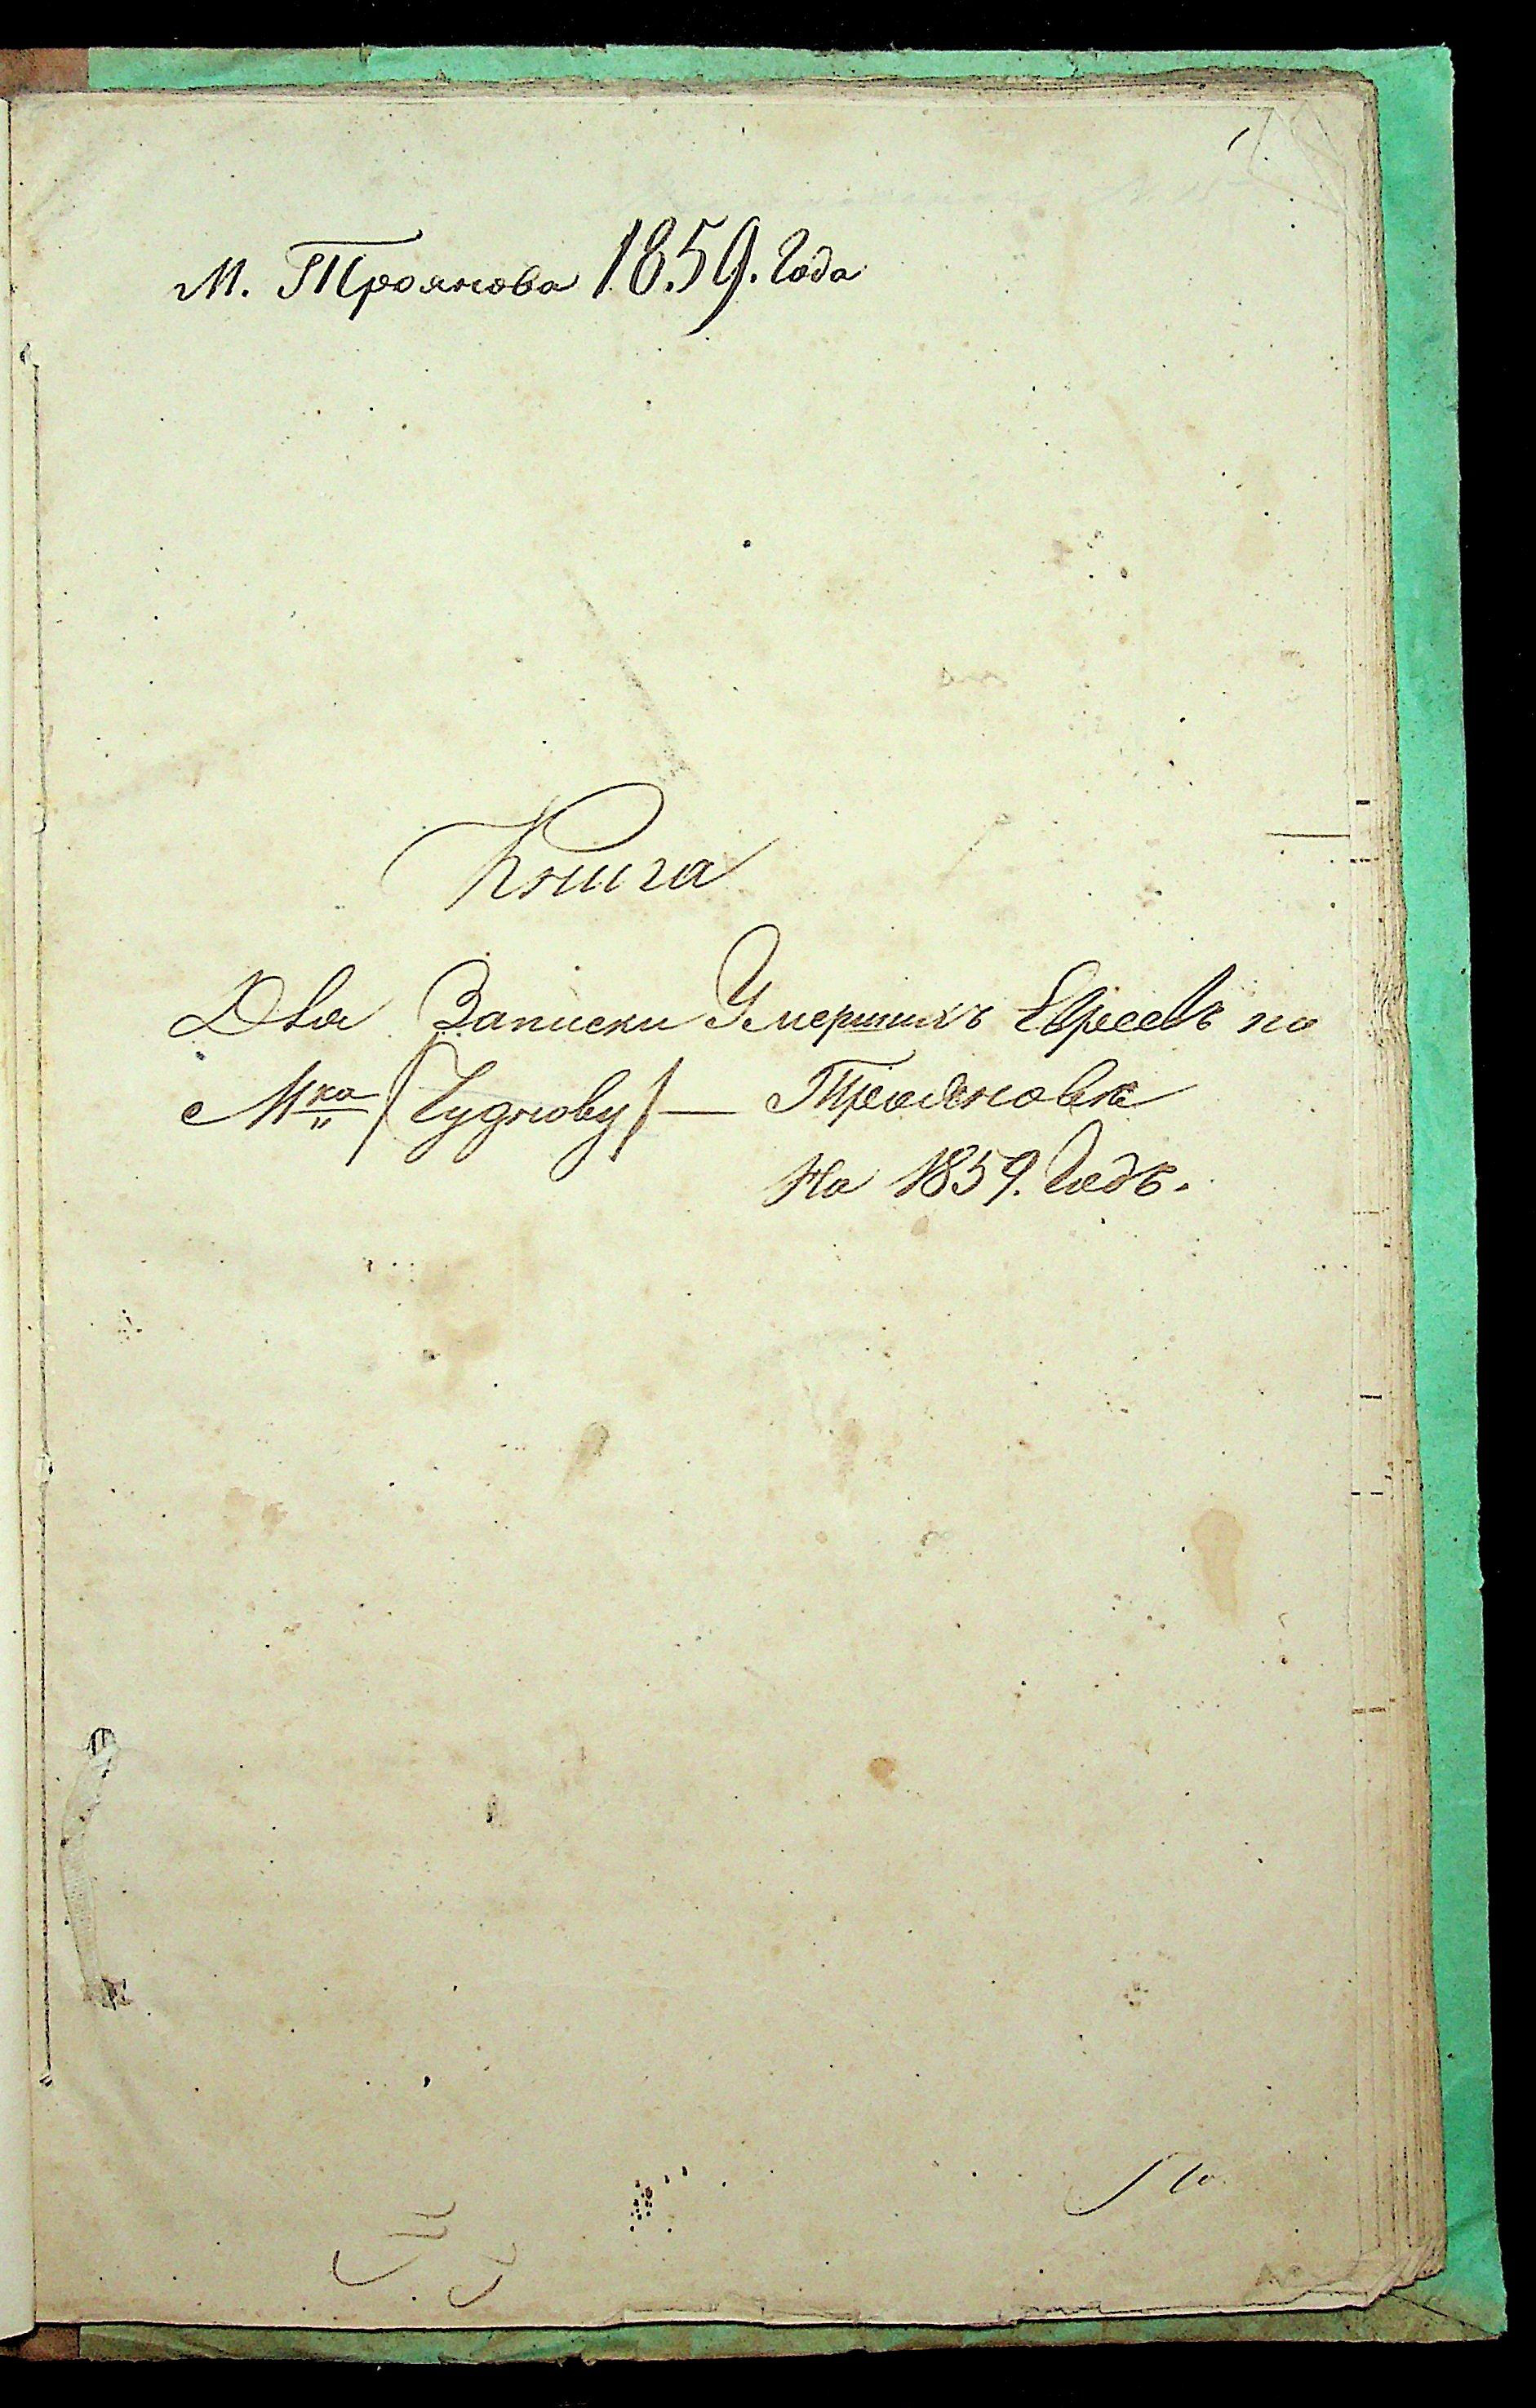 м. Троянова 1859. Года
Книга
Для Записки Умершихъ Евреевъ по
Мка /Чуднову/ — Трояновка
На 1859. Годъ.